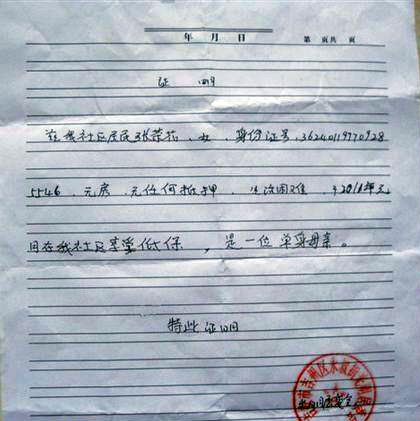 年 月 日 第 页共 页
证 明
兹我社区居民张荣花，女，身份证号36240119770928
5546，无房，无任何抵押，生活困难，于2010年元
月在我社区享受低保，是一位单身母亲。
特此证明